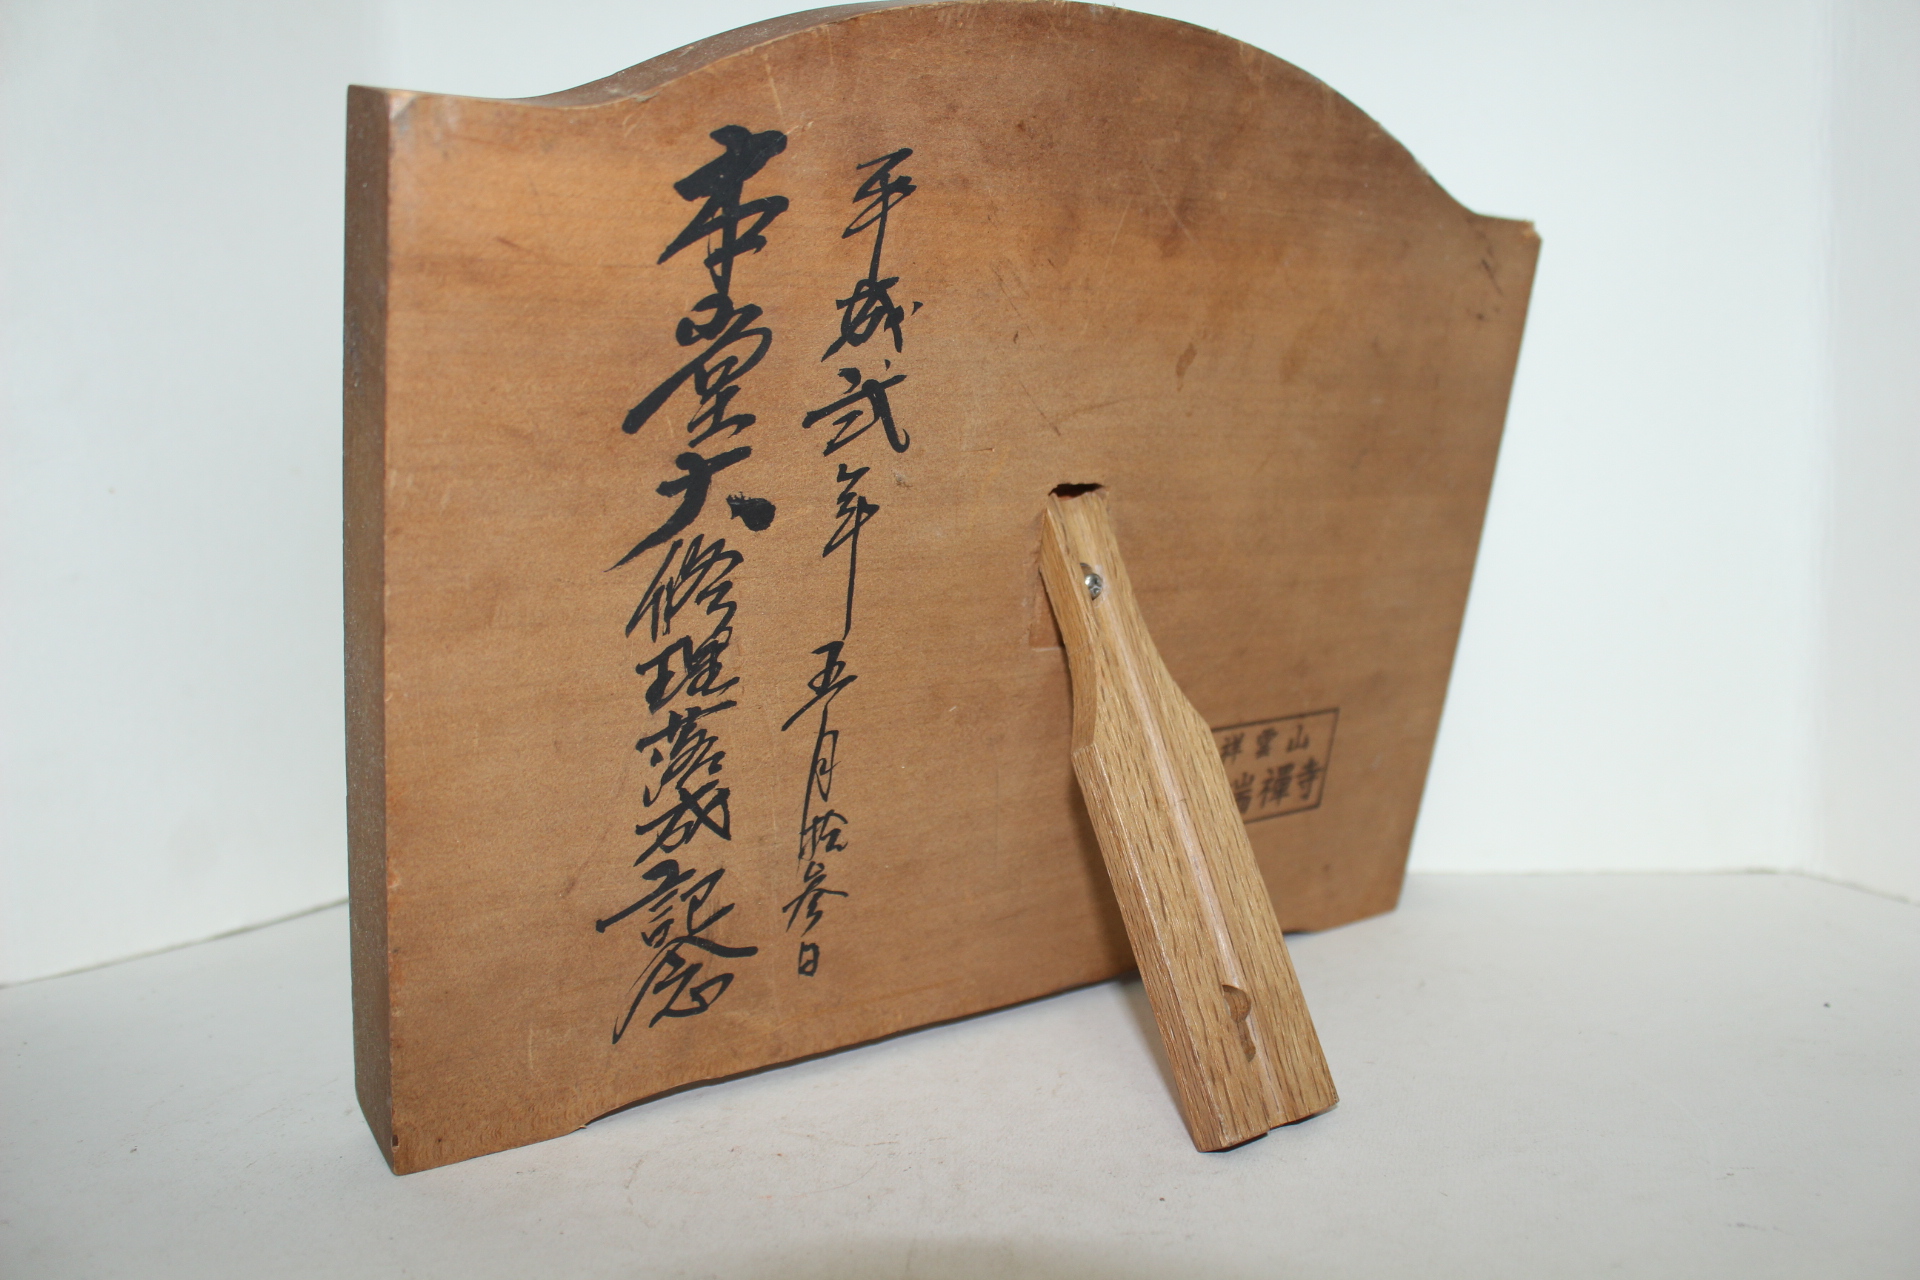 平成弐年五月拾参日
本堂大修理落成記念
祥雲山
瑞禅寺